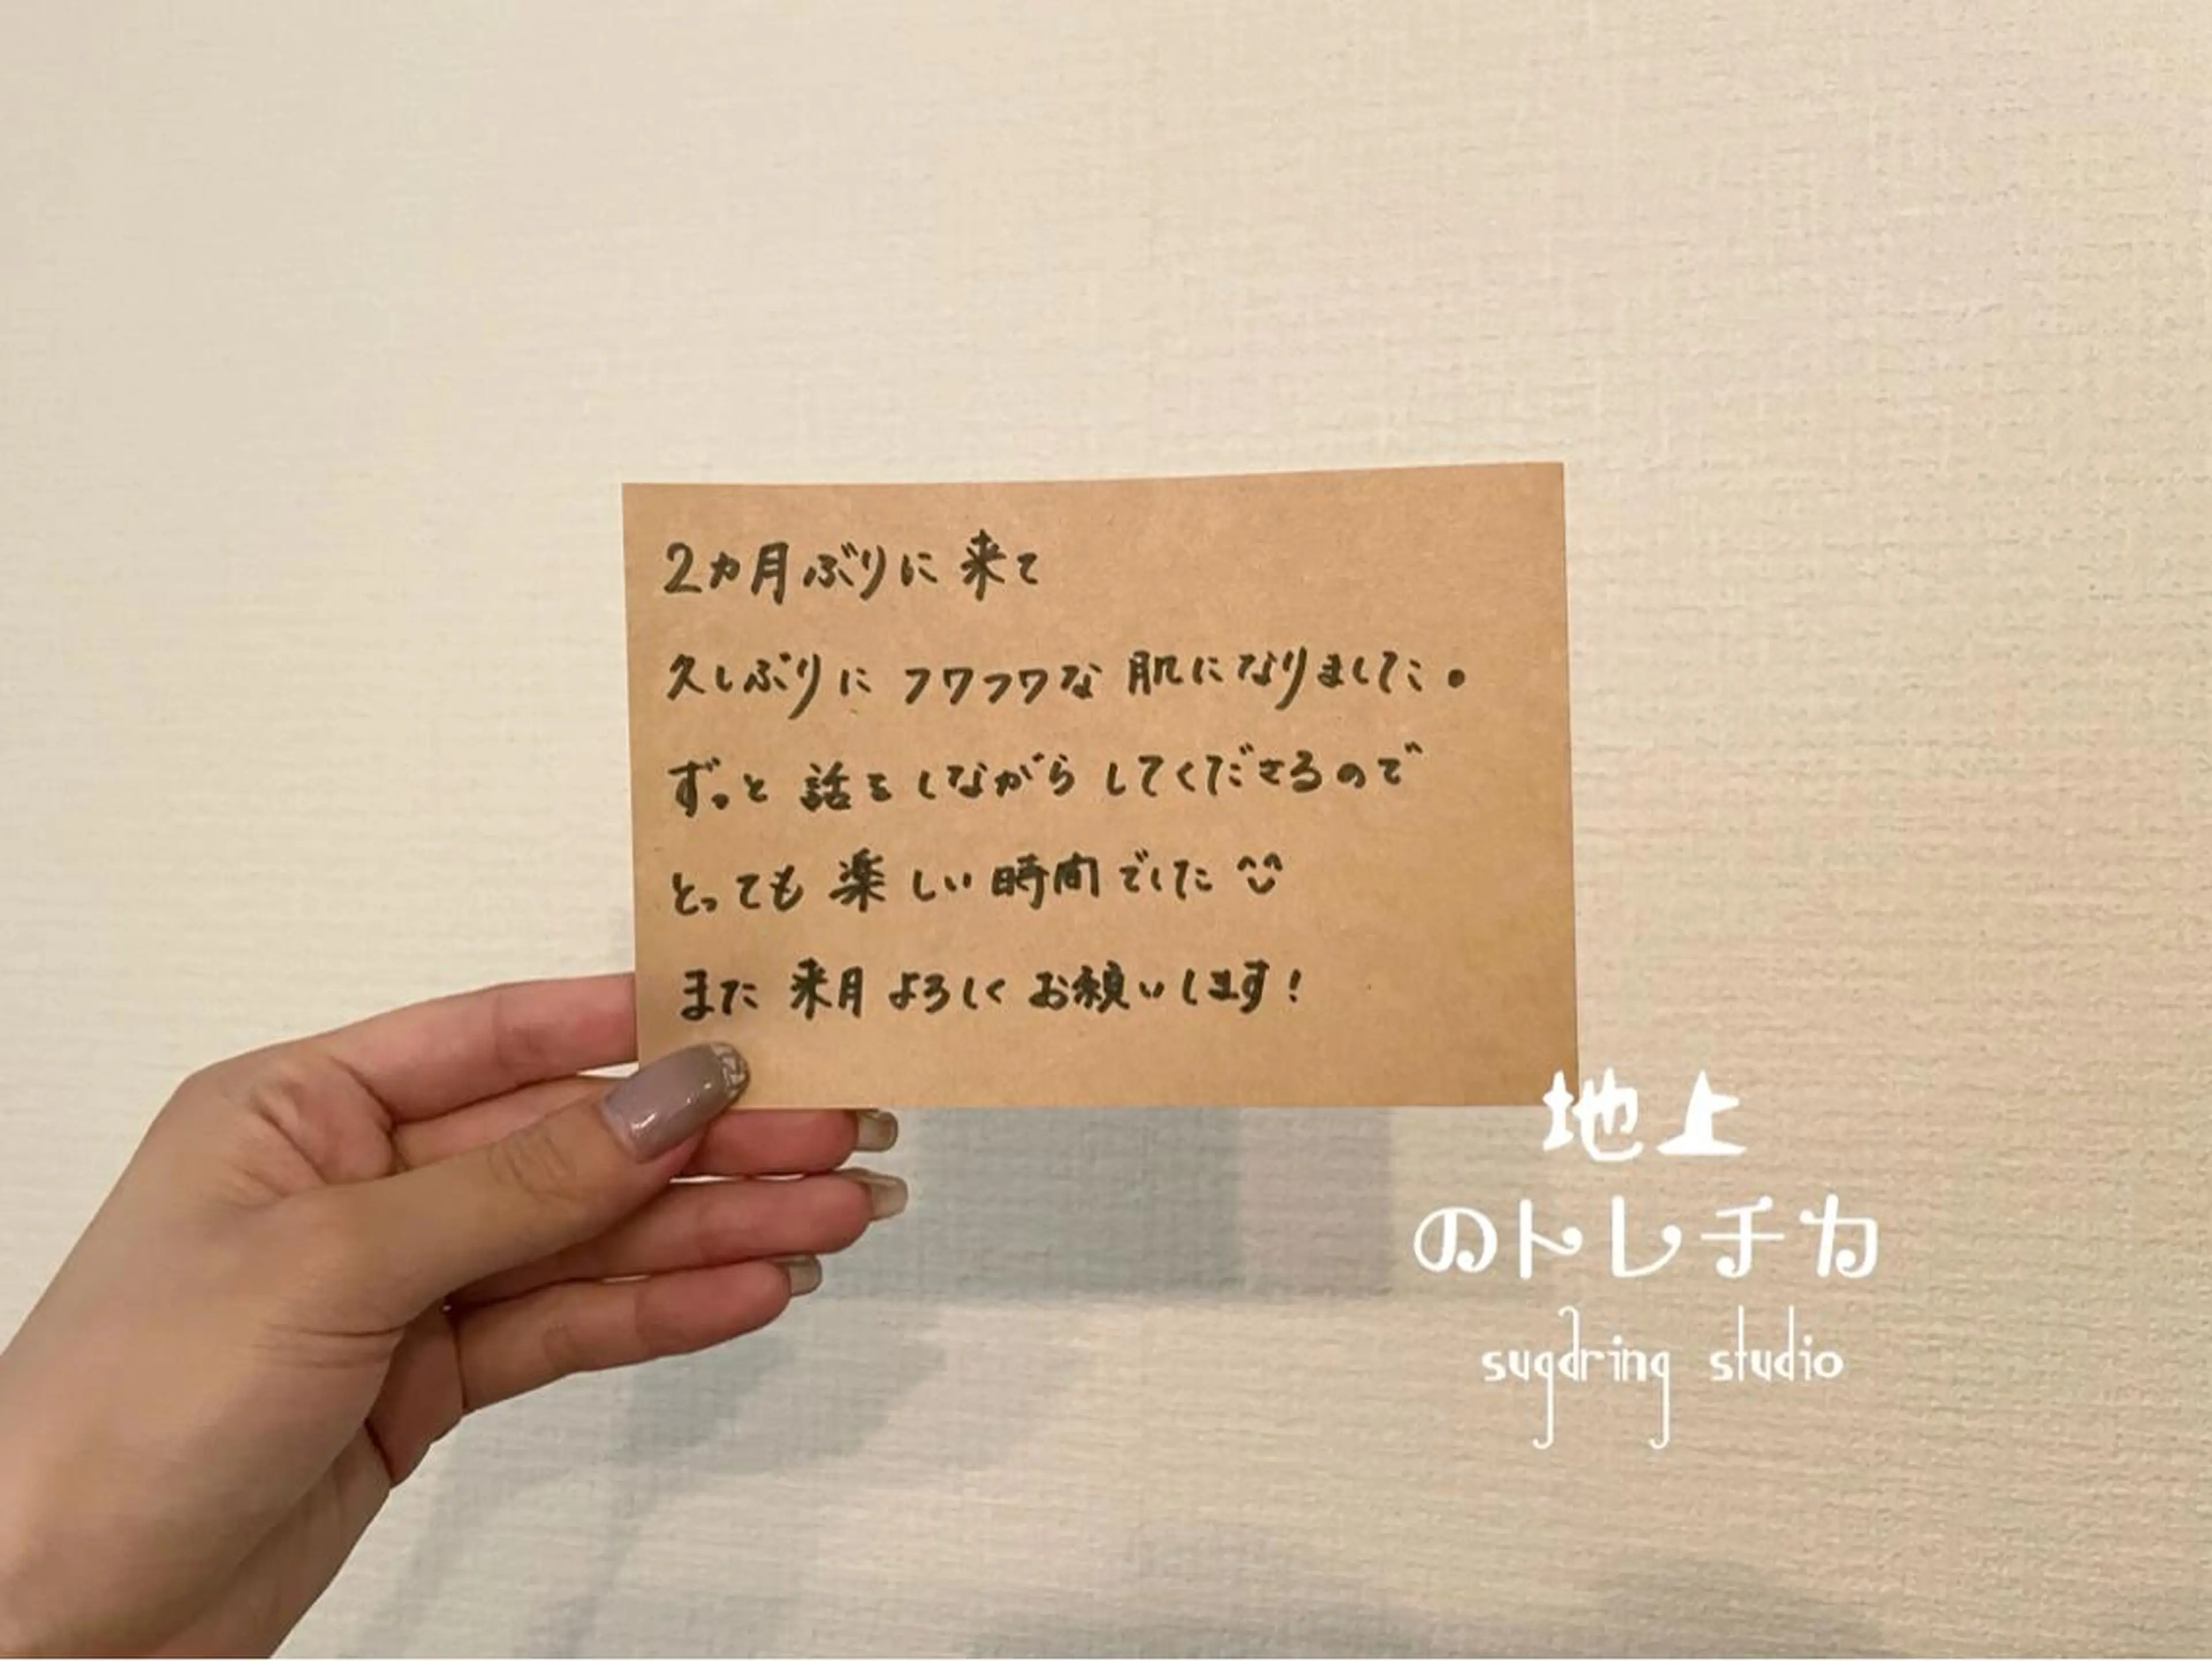 2カ月ぶりに来て
久しぶりにフワフワな肌になりました。
ずっと話をしながらしてくださるので
とっても楽しい時間でした^^
また来月よろしくお願いします!
地上
のトレチカ
sugaring studio